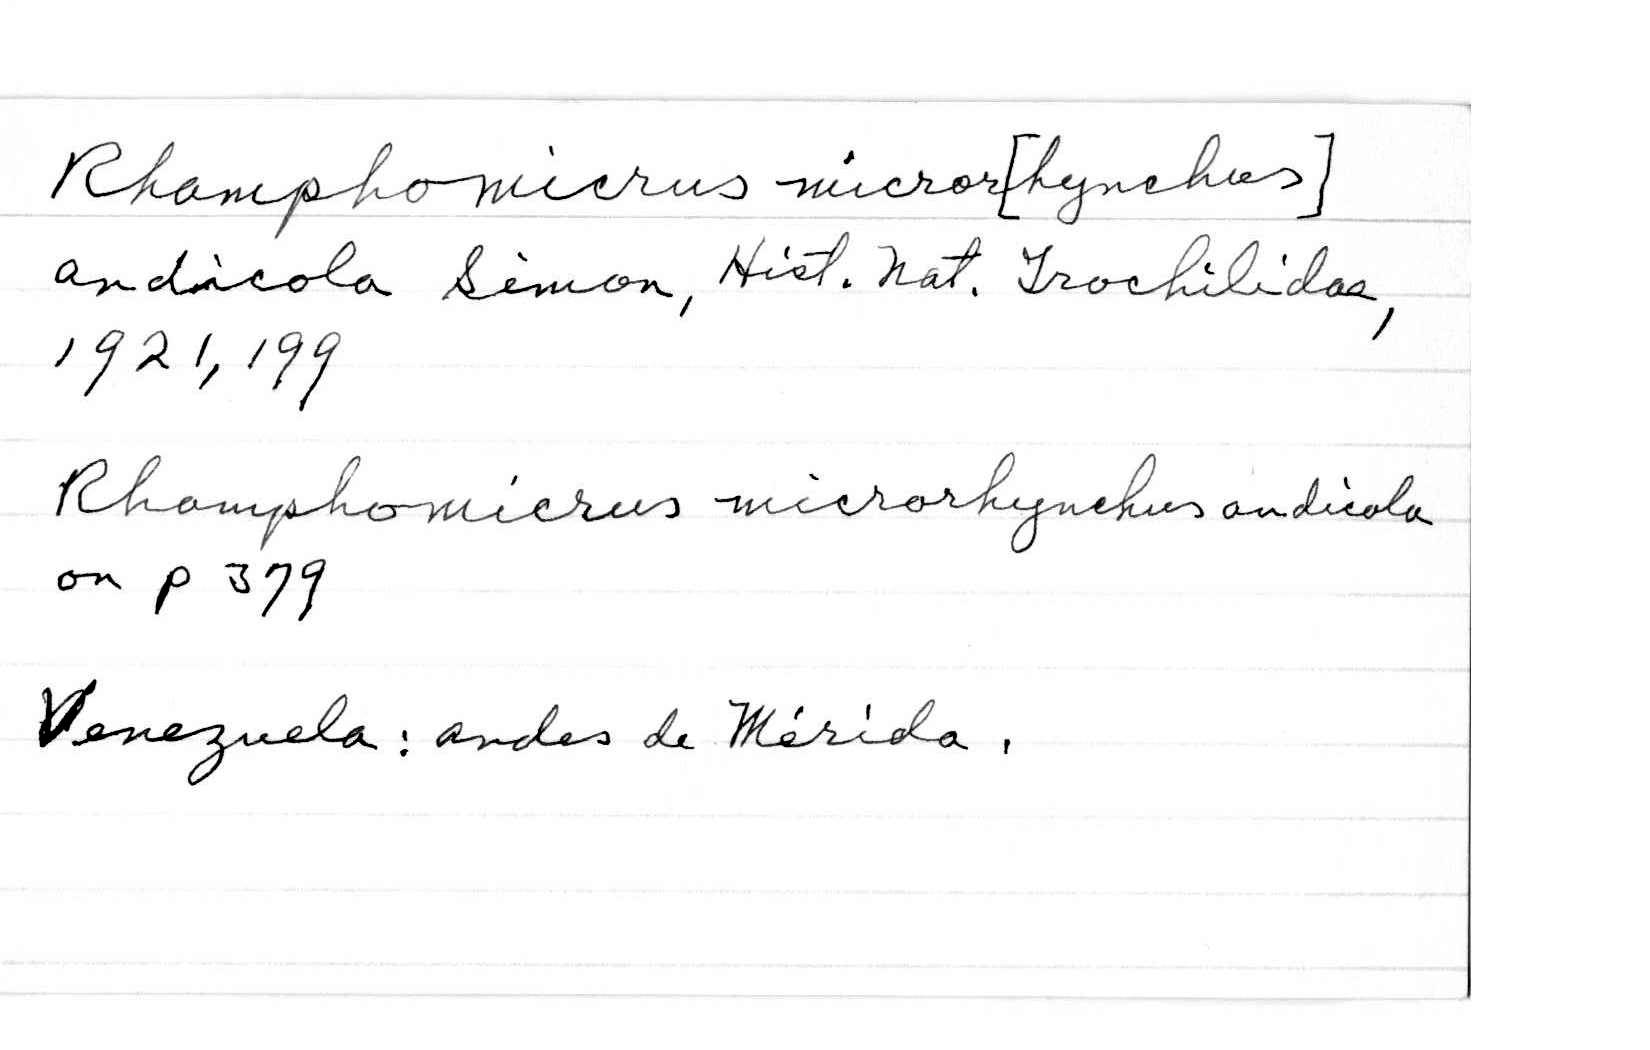 Rhamphomicrus micror[hynchus]
andicola Simon, Hist. Nat. Trochilidae,
1921, 199
Rhamphomicrus microrhynchus andicola
on p 379
Venezuela: andes de Mérida.